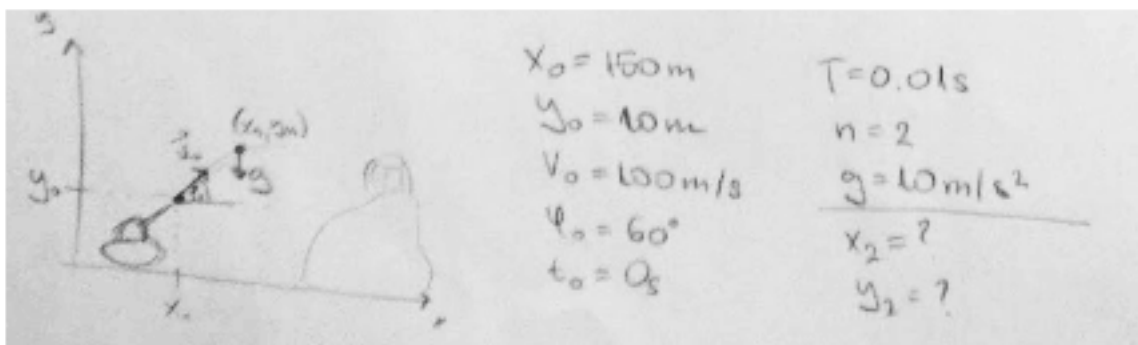 y
(xₙ, yₙ)
g
y₀
x₀
x₀ = 150m
y₀ = 10m
V₀ = 100m/s
φ₀ = 60°
t₀ = 0s
T = 0.01s
n = 2
g = 10m/s²
x₂ = ?
y₂ = ?